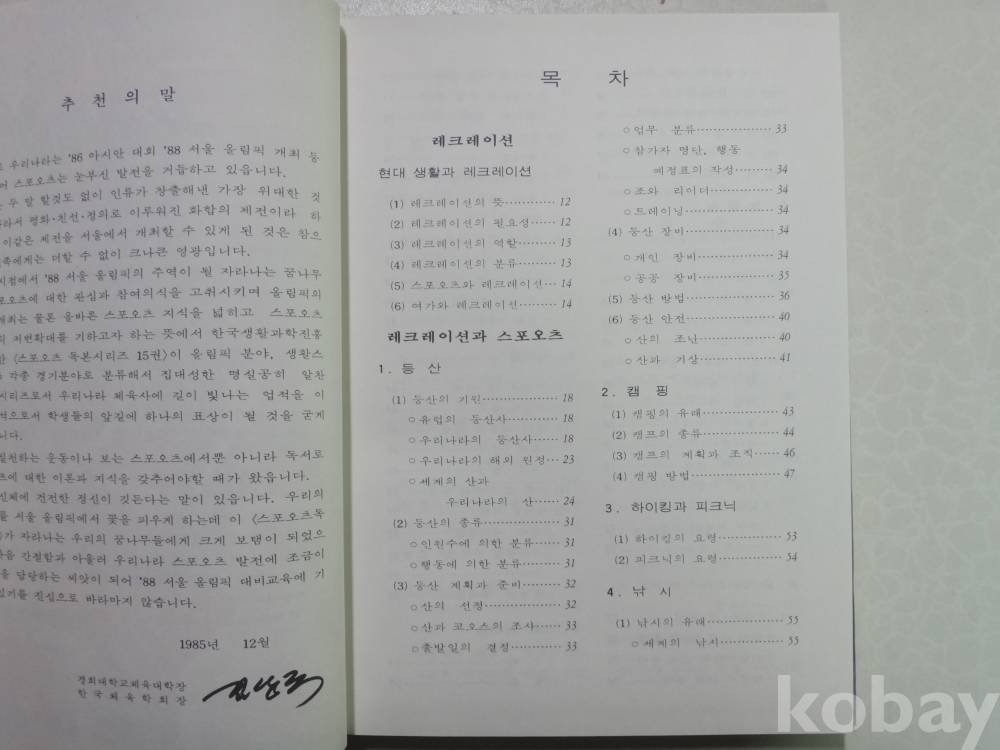 추 천 의 말
우리나라는 '86 아시안 대회 '88 서울 올림픽 개최 등
스포오츠는 눈부신 발전을 거듭하고 있읍니다.
두 말 할것도 없이 인류가 창출해낸 가장 위대한 것
평화·친선·정의로 이루워진 화합의 제전이라 하
이같은 제전을 서울에서 개최할 수 있게 된 것은 참으
족에게는 더할 수 없이 크나큰 영광입니다.
시점에서 '88 서울 올림픽의 주역이 될 자라나는 꿈나무
포오츠에 대한 관심과 참여의식을 고취시키며 올림픽의
개최는 물론 올바른 스포오츠 지식을 넓히고 스포오츠
의 저변확대를 기하고자 하는 뜻에서 한국생활과학진흥
한 〈스포오츠 독본시리즈 15권〉이 올림픽 분야, 생활스
각종 경기분야로 분류해서 집대성한 명실공히 알찬
시리즈로서 우리나라 체육사에 길이 빛나는 업적을 이
적으로서 학생들의 앞길에 하나의 표상이 될 것을 굳게
니다.
실천하는 운동이나 보는 스포오츠에서뿐 아니라 독서로
츠에 대한 이론과 지식을 갖추어야할 때가 왔읍니다.
신체에 건전한 정신이 깃든다는 말이 있읍니다. 우리의
를 서울 올림픽에서 꽃을 피우게 하는데 이 〈스포오츠독
가 자라나는 우리의 꿈나무들에게 크게 보탬이 되었으
간절함과 아울러 우리나라 스포오츠 발전에 조금이
을 담당하는 씨앗이 되어 '88 서울 올림픽 대비교육에 기
있기를 진심으로 바라마지 않습니다.
1985년 12월
경희대학교체육대학장
한국체육학회장
목 차
레크레이션
현대 생활과 레크레이션
(1) 레크레이션의 뜻………… 12
(2) 레크레이션의 필요성…… 12
(3) 레크레이션의 역할……… 13
(4) 레크레이션의 분류……… 13
(5) 스포오츠와 레크레이션… 14
(6) 여가와 레크레이션……… 14
레크레이션과 스포오츠
1. 등 산
(1) 등산의 기원……………… 18
○유럽의 등산사…………… 18
○우리나라의 등산사……… 18
○우리나라의 해외 원정… 23
○세계의 산과
우리나라의 산…… 24
(2) 등산의 종류……………… 31
○인원수에 의한 분류…… 31
○행동에 의한 분류……… 31
(3) 등산 계획과 준비……… 32
○산의 선정……………… 32
○산과 코오스의 조사…… 33
○출발일의 결정………… 33
○업무 분류……………… 33
○참가자 명단, 행동
예정표의 작성………… 34
○조와 리이더…………… 34
○트레이닝……………… 34
(4) 등산 장비……………… 34
○개인 장비……………… 34
○공공 장비……………… 35
(5) 등산 방법……………… 36
(6) 등산 안전……………… 40
○산의 조난……………… 40
○산과 기상……………… 41
2. 캠 핑
(1) 캠핑의 유래…………… 43
(2) 캠프의 종류…………… 44
(3) 캠프의 계획과 조직…… 46
(4) 캠핑 방법……………… 47
3. 하이킹과 피크닉
(1) 하이킹의 요령………… 53
(2) 피크닉의 요령………… 54
4. 낚 시
(1) 낚시의 유래…………… 55
○세계의 낚시…………… 55
kobay